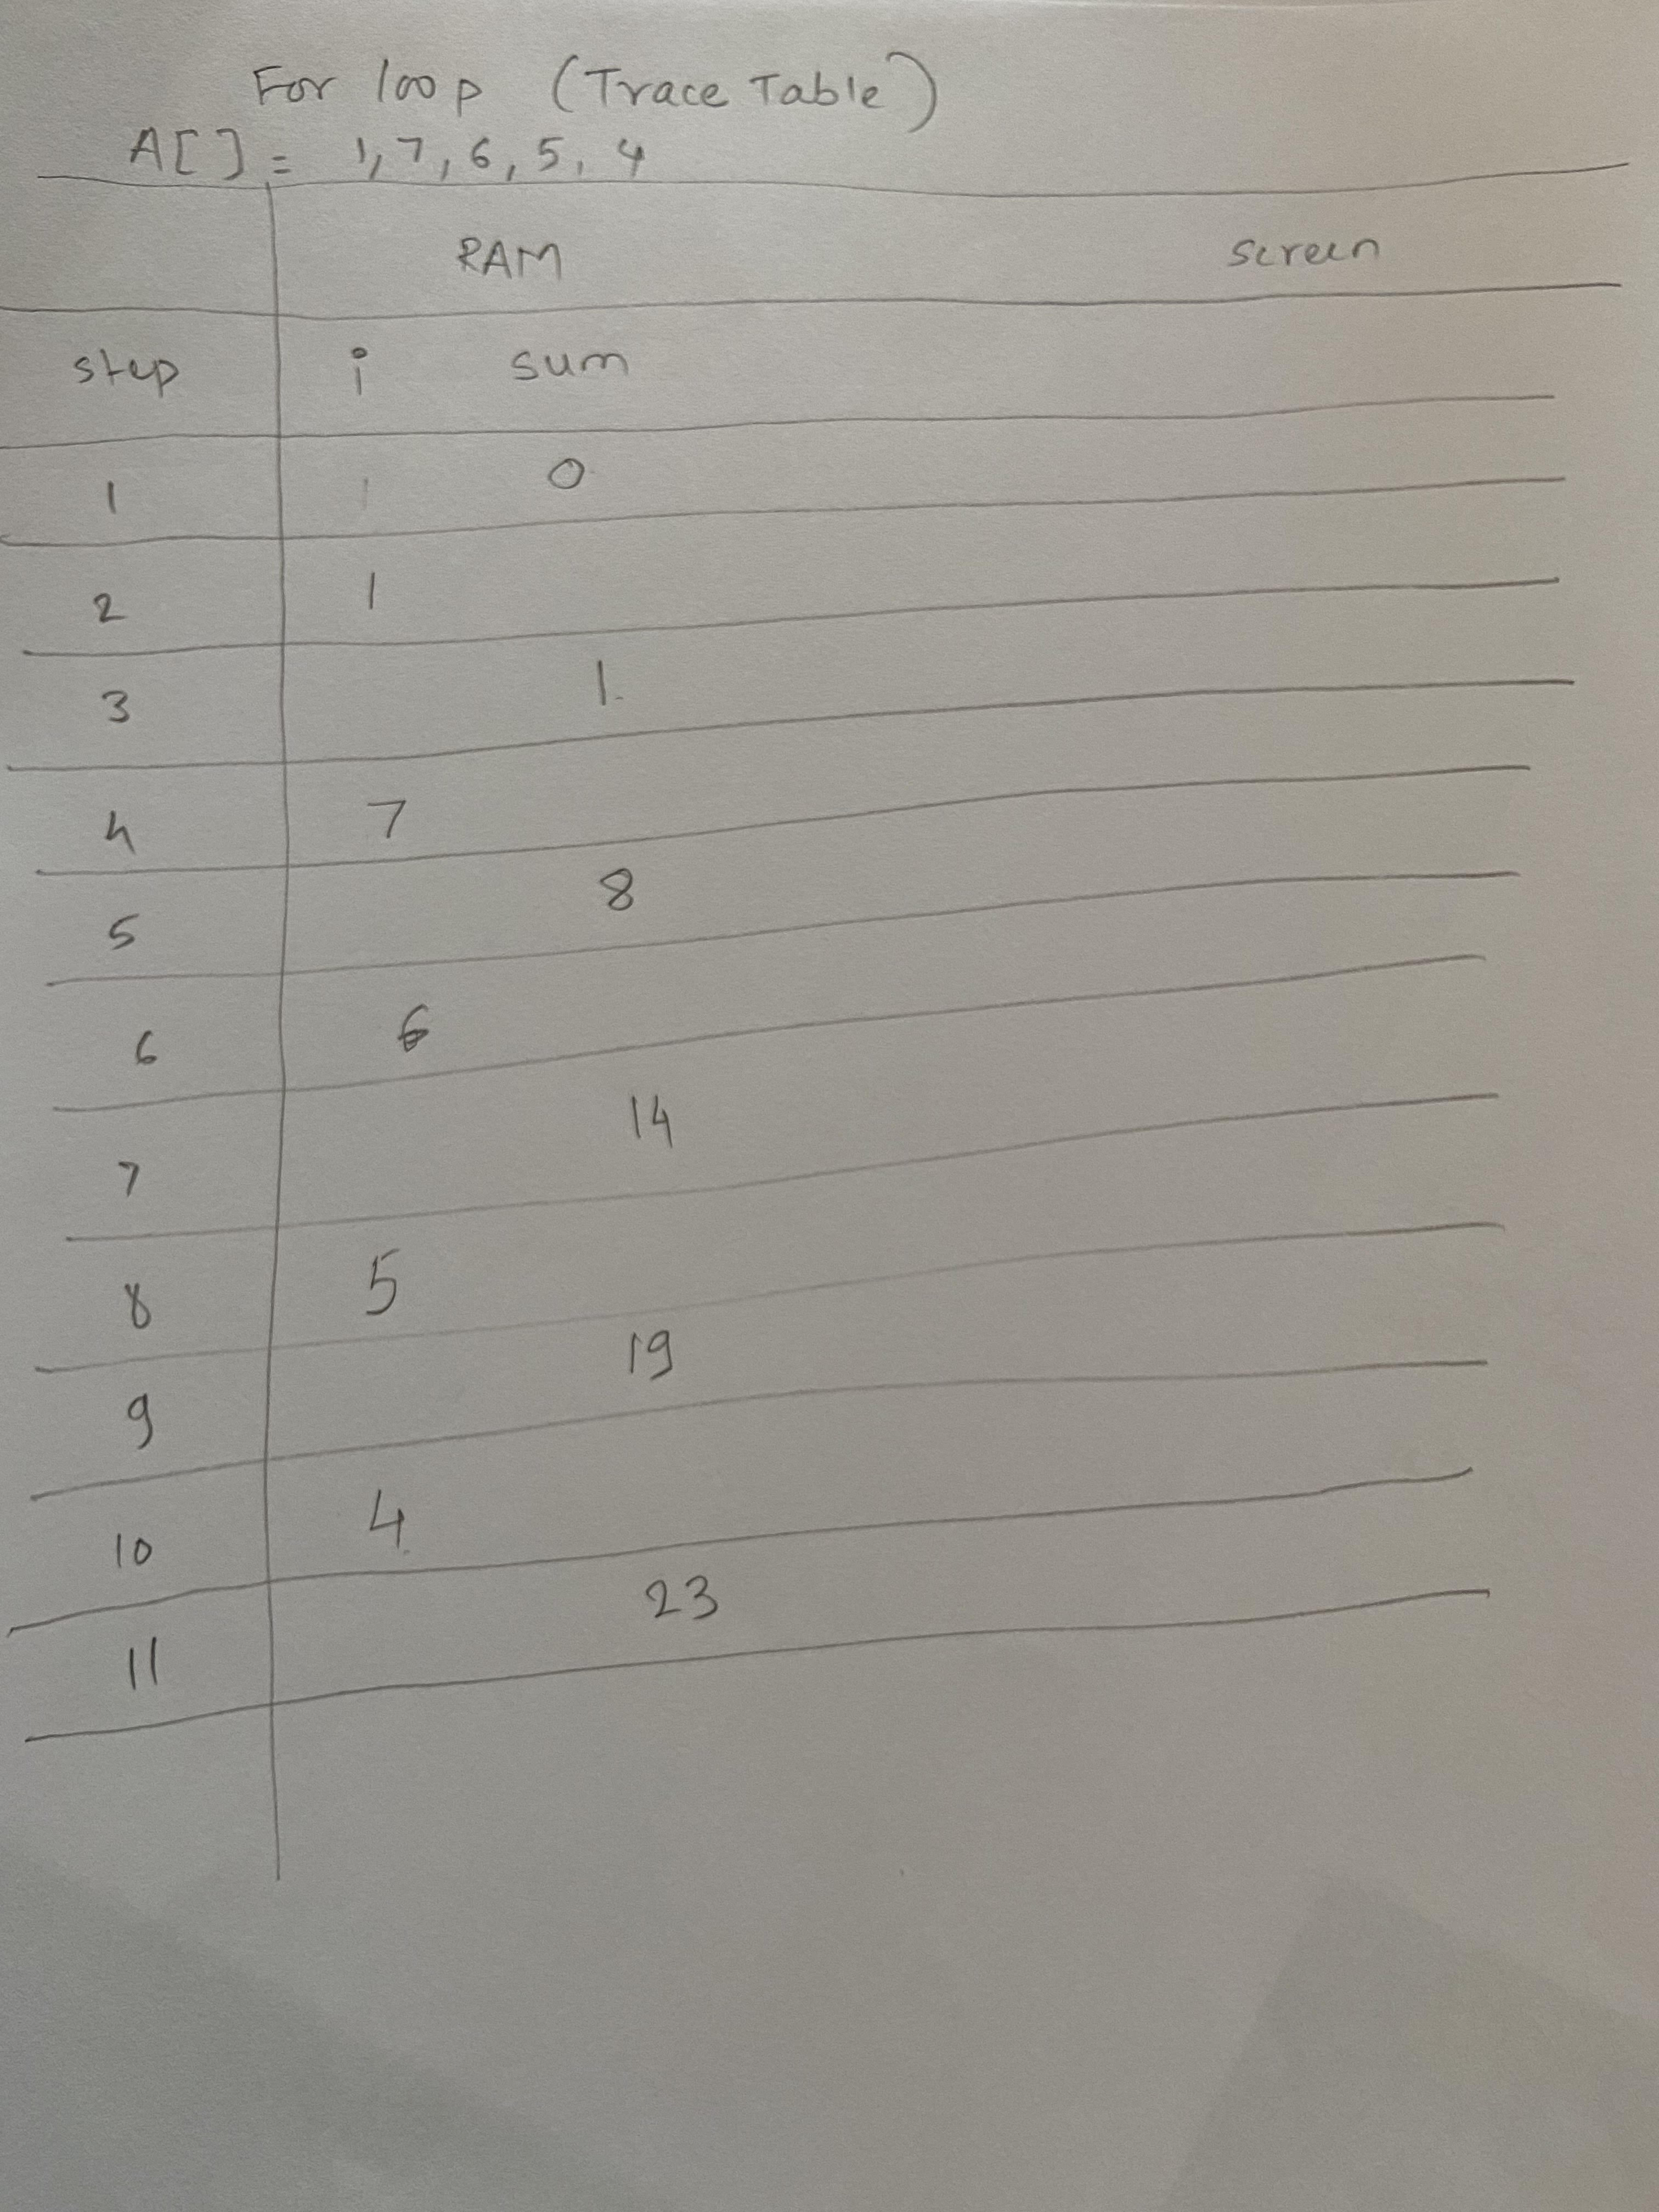 For loop (Trace Table)
A[] = 1, 7, 6, 5, 4
RAM screen
step i sum
1 0
2 1
3 1
4 7
5 8
6 6
7 14
8 5
9 19
10 4
11 23